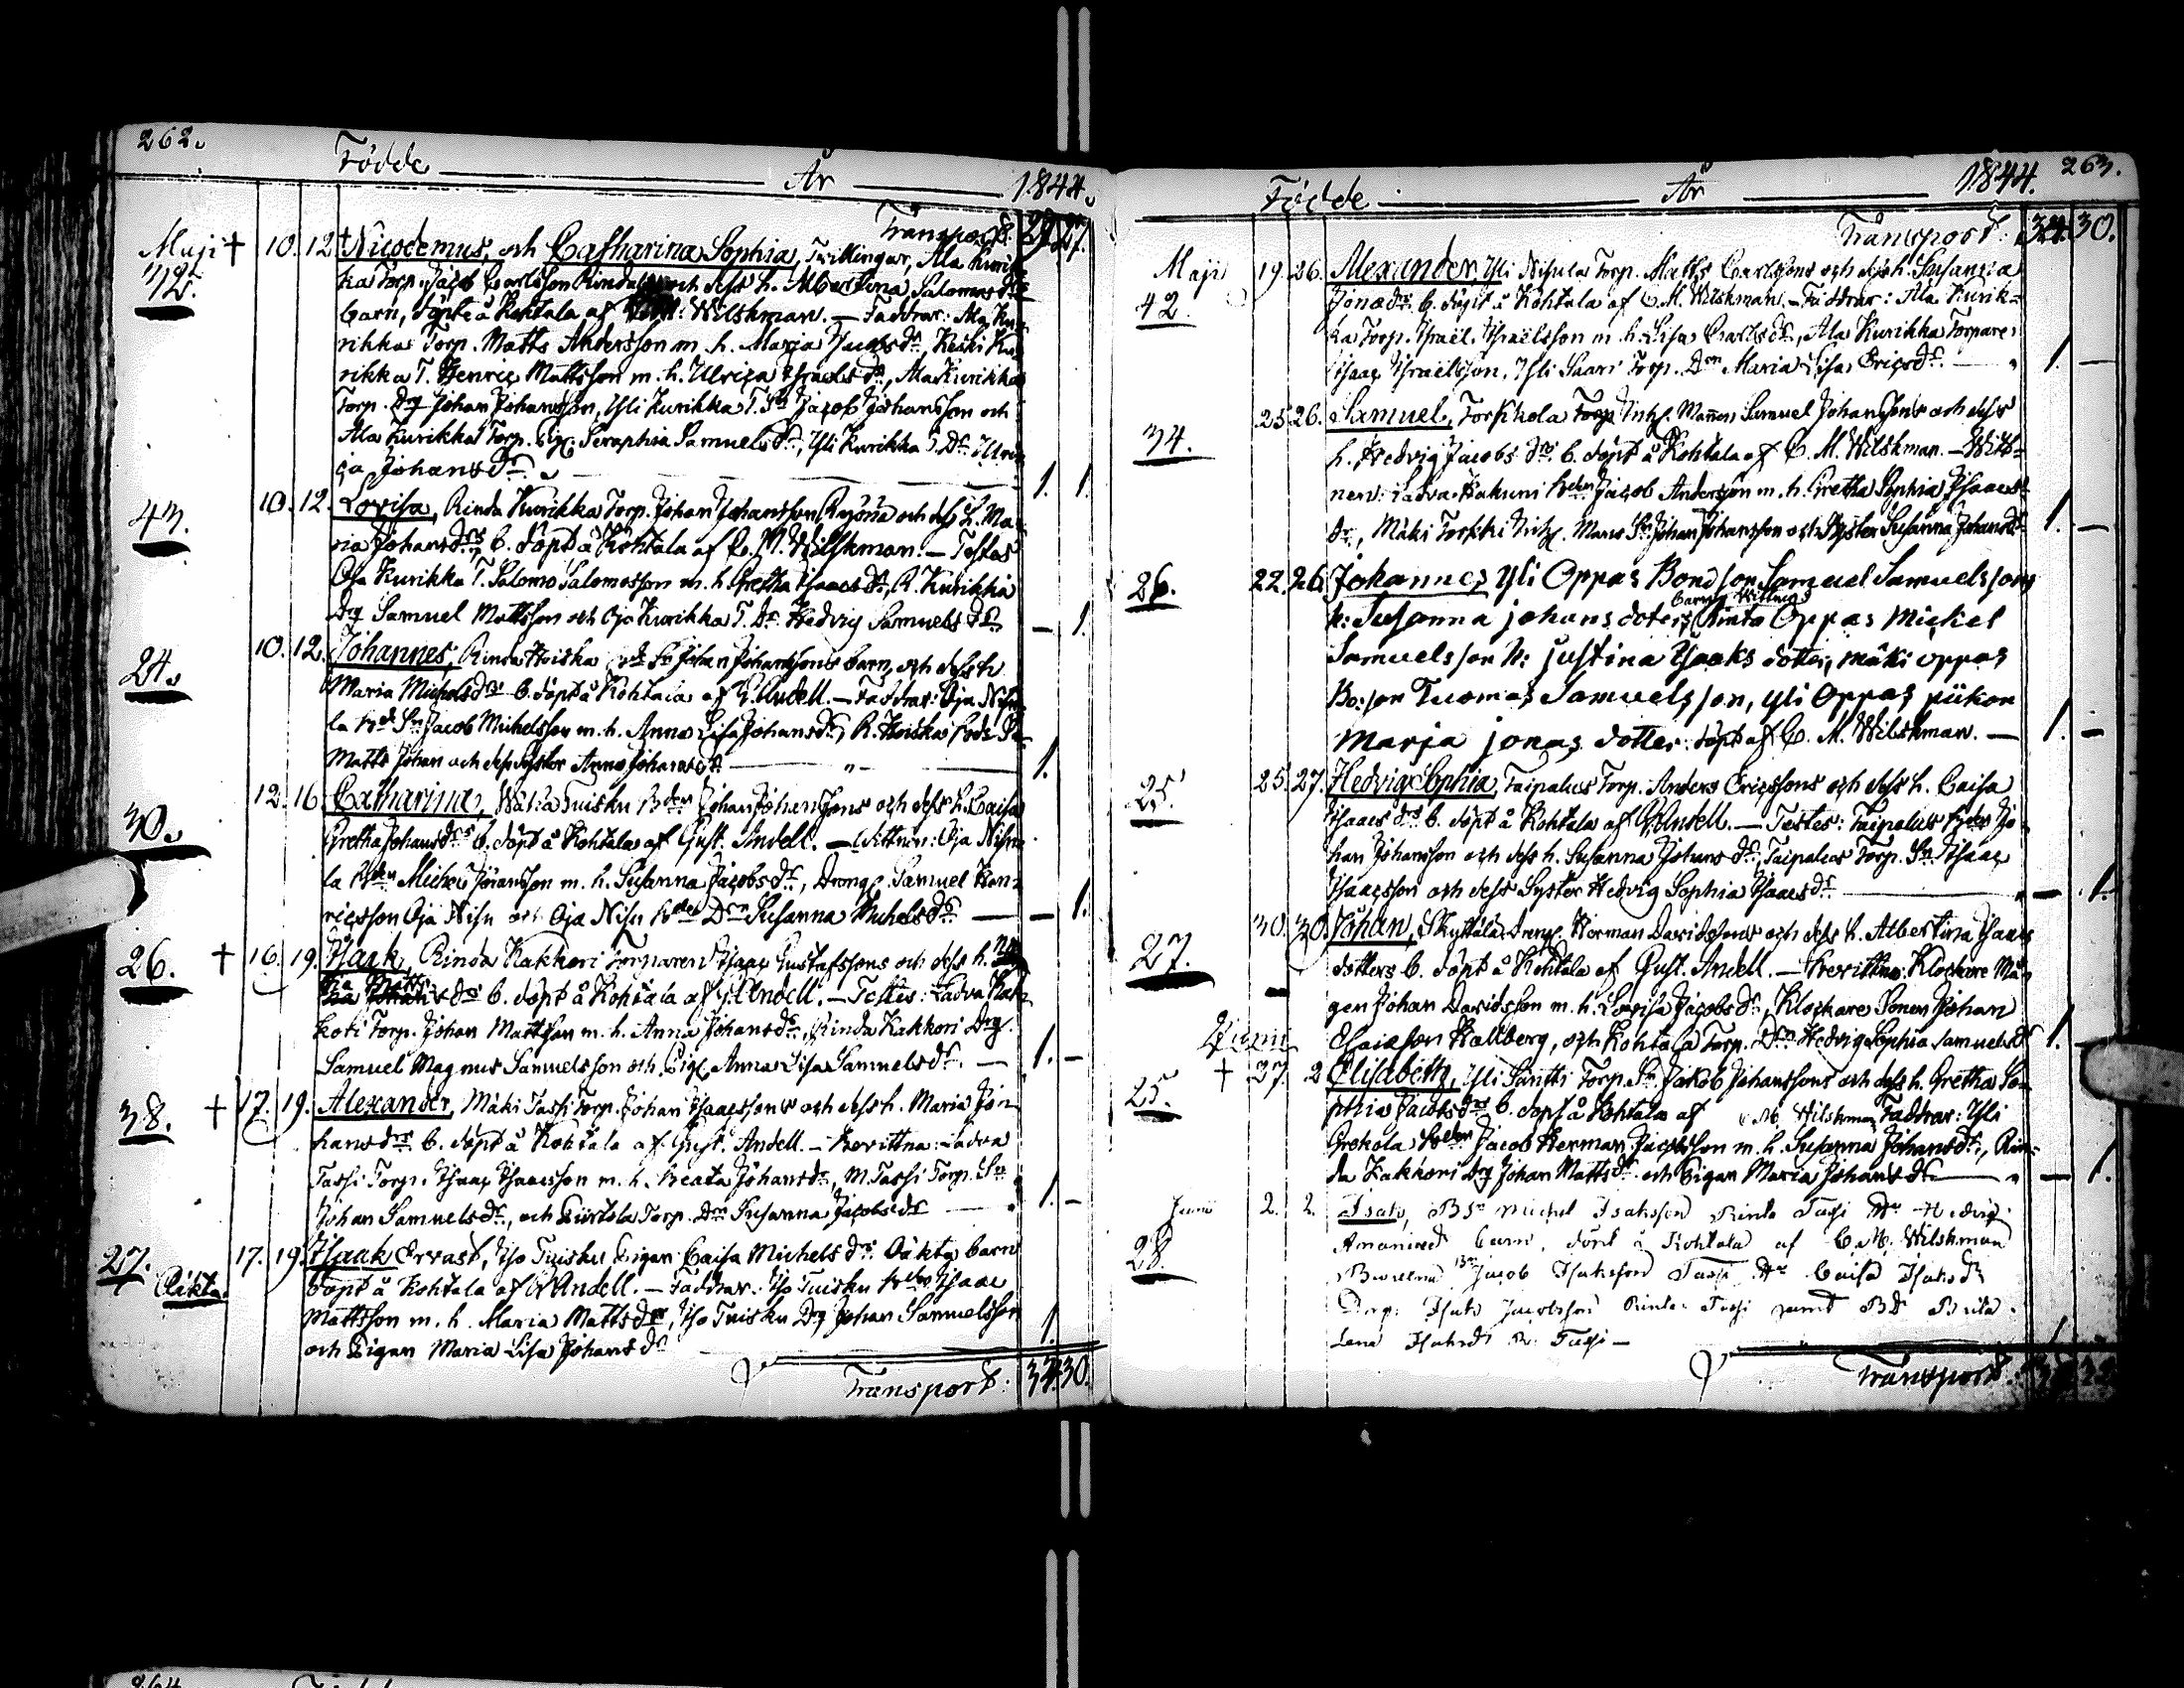 262.
Födde År 1844.
Transport: 29. 27.
Maji † 10. 12. † Nicodemus, och Catharina Sophia, Tvillingar, Ala Kurik-
42. ka Torp. Jacob Carlsson Rindal och dess h. Albertina Salomos drs
barn, döpte å Kohtala af Wilskman. — Faddrar: Ala Ku-
rikka Torp. Matts Andersson m. h. Maria Jacobs dr, Keski Ku-
rikka T. Henric Mattsson m. h. Ulrica Israels dr, Ala Kurikka
Torp. Drg Johan Johansson, Yli Kurikka T. Sn Jacob Johansson och
Ala Kurikka Torp. Pig. Seraphia Samuels dr, Yli Kurikka T. Dr Ulri-
ca Johans dr. 1. 1.
43. 10. 12. Lovisa, Rinda Kurikka Torp. Johan Johansson och dess h. Ma-
ria Johans drs b. döpt å Kohtala af C. M. Wilskman. — Testes
Oja Kurikka T. Salomo Salomosson m. h. Gretha Isaacs dr, R. Kurikka
Drg Samuel Mattsson och Oja Kurikka T. Dr Hedvig Samuels dr — 1.
24. 10. 12. Johannes, Rinda Hoiska Sn Johan Johanssons barn och dess h.
Maria Michels drs b. döpt å Kohtala af G. Andell. — Faddrar: Oja Nisu-
la Sn Jacob Michelsson m. h. Anna Lisa Johans dr, R. Hoiska
Matts Johan och dess Syster Anna Johans dr — " — 1.
30. 12. 16. Catharina, Tuisku Bden Johan Johanssons och dess h. Caisa
Gretha Johans drs b. döpt å Kohtala af Gust. Andell. — Wittnen: Oja Nisu-
la Bden Michel Johansson m. h. Susanna Jacobs dr, Dreng. Samuel Hen-
ricsson Oja Nisu och Oja Nisu Bdes Drn Susanna Michels dr — — 1.
26. † 16. 19. Isaak, Rinda Kakkori Torparen Isaac Gustafssons och dess h.
drs b. döpt å Kohtala af G. Andell. — Testes: Ladva Kak-
kori Torp. Johan Mattsson m. h. Anna Johans dr, Rinda Kakkori Drg.
Samuel Magnus Samuelsson och Pig. Anna Lisa Samuels dr. — 1. —
38. † 17. 19. Alexander, Mäki Tassi Torp. Johan Isaacssons och dess h. Maria Jo-
hans drs b. döpt å Kohtala af Gust. Andell. — Ladva
Tassi Torp. Isaac Isaacsson m. h. Beata Johans dr, M. Tassi Torp. Sn
Johan Samuels dr, och Torp. Drn Susanna Jacobs dr — 1. —
27. Oäkta. 17. 19. Isaak Ervast, Iso Tuisku Pigan Caisa Michels drs Oäkta barn
döpt å Kohtala af G. Andell. — Faddrar: Iso Tuisku Isaac
Mattsson m. h. Maria Matts dr, Iso Tuisku Drg Johan Samuelsson
och Pigan Maria Lisa Johans dr 1.
Transport: 34. 30.
263.
Födde År 1844.
Transport: 34. 30.
Maji 19. 26. Alexander, Yli Nisula Torp. Matts Carlssons och dess h. Susanna
42. Jonæ drs b. döpt å Kohtala af C. M. Wilskman. — Faddrar: Ala Kurik-
ka Torp. Israël Israëlsson m. h. Lisa Carls dr, Ala Kurikka Torpare
Isaac Israëlsson, Yli Saari Torp. Drn Maria Lisa Erics dr. — 1. —
34. 25. 26. Samuel, Torkkola Inh. Mannen Samuel Johanssons och dess
h. Hedvig Jacobs drs b. döpt å Kohtala af C. M. Wilskman. — Witt-
nen: Ladva Hakuni Bden Jacob Andersson m. h. Gretha Sophia Isaacs
dr, Mäki Torkki Inh. Mans Sn Johan Johansson och Syster Susanna Johans dr 1. —
26. 22. 26. Johannes, Yli Oppas Bond son Samuel Samuelssons
h: Susanna johans doters barn, Wittnes Rinta Oppas Mickel
Samuelsson h: justina Ysaaks dotter, mäki oppas
Bo: son Tuomas Samuelsson, yli Oppas piikon
Marja jonas dotter. döpt af C. M. Wilskman. — 1. —
25. 25. 27. Hedvig Sophia, Taipalus Torp. Anders Ericssons och dess h. Caisa
Isaacs drs b. döpt å Kohtala af G. Andell. — Testes: Taipalus Jo-
han Johansson och dess h. Susanna Johans dr, Taipalus Torp. Sn Isaac
Isaacsson och dess Syster Hedvig Sophia Isaacs dr — — 1.
27. 30. 30. Johan, Skyttälä Dreng. Herman Davidssons och dess h. Albertina Isaacs
dotters b. döpt å Kohtala af Gust. Andell. — Klockare Må-
gen Johan Davidsson m. h. Lovisa Jacobs dr, Klockare Sonen Johan
Esaiasson Hallberg, och Kohtala Torp. Drn Hedvig Sophia Samuels dr 1. —
Junii
25. † 27. 2. Elisabeth, Yli Säntti Torp. Sn Jakob Johanssons och dess h. Gretha So-
phia Jacobs drs b. döpt å Kohtala af C. M. Wilskman Faddrar: Yli
Grekola Bden Jacob Herman Jacobsson m. h. Susanna Johans dr, Rin-
da Kakkori Drg Johan Matts dr och Pigan Maria Johans dr — — 1.
Junii 2. 2. Isak, BSn Michel Isaksson Rinta Tassi Hr Hedvig
28. barn, döpt i Kohtala af C. M. Wilskman
Jacob Isaksson Tassi Hr Caisa Isaksdr
Dreng. Isak Jacobsson Rinta Tassi samt Brita
Lena Isaksdr R. Tassi — 1
Transport:
264